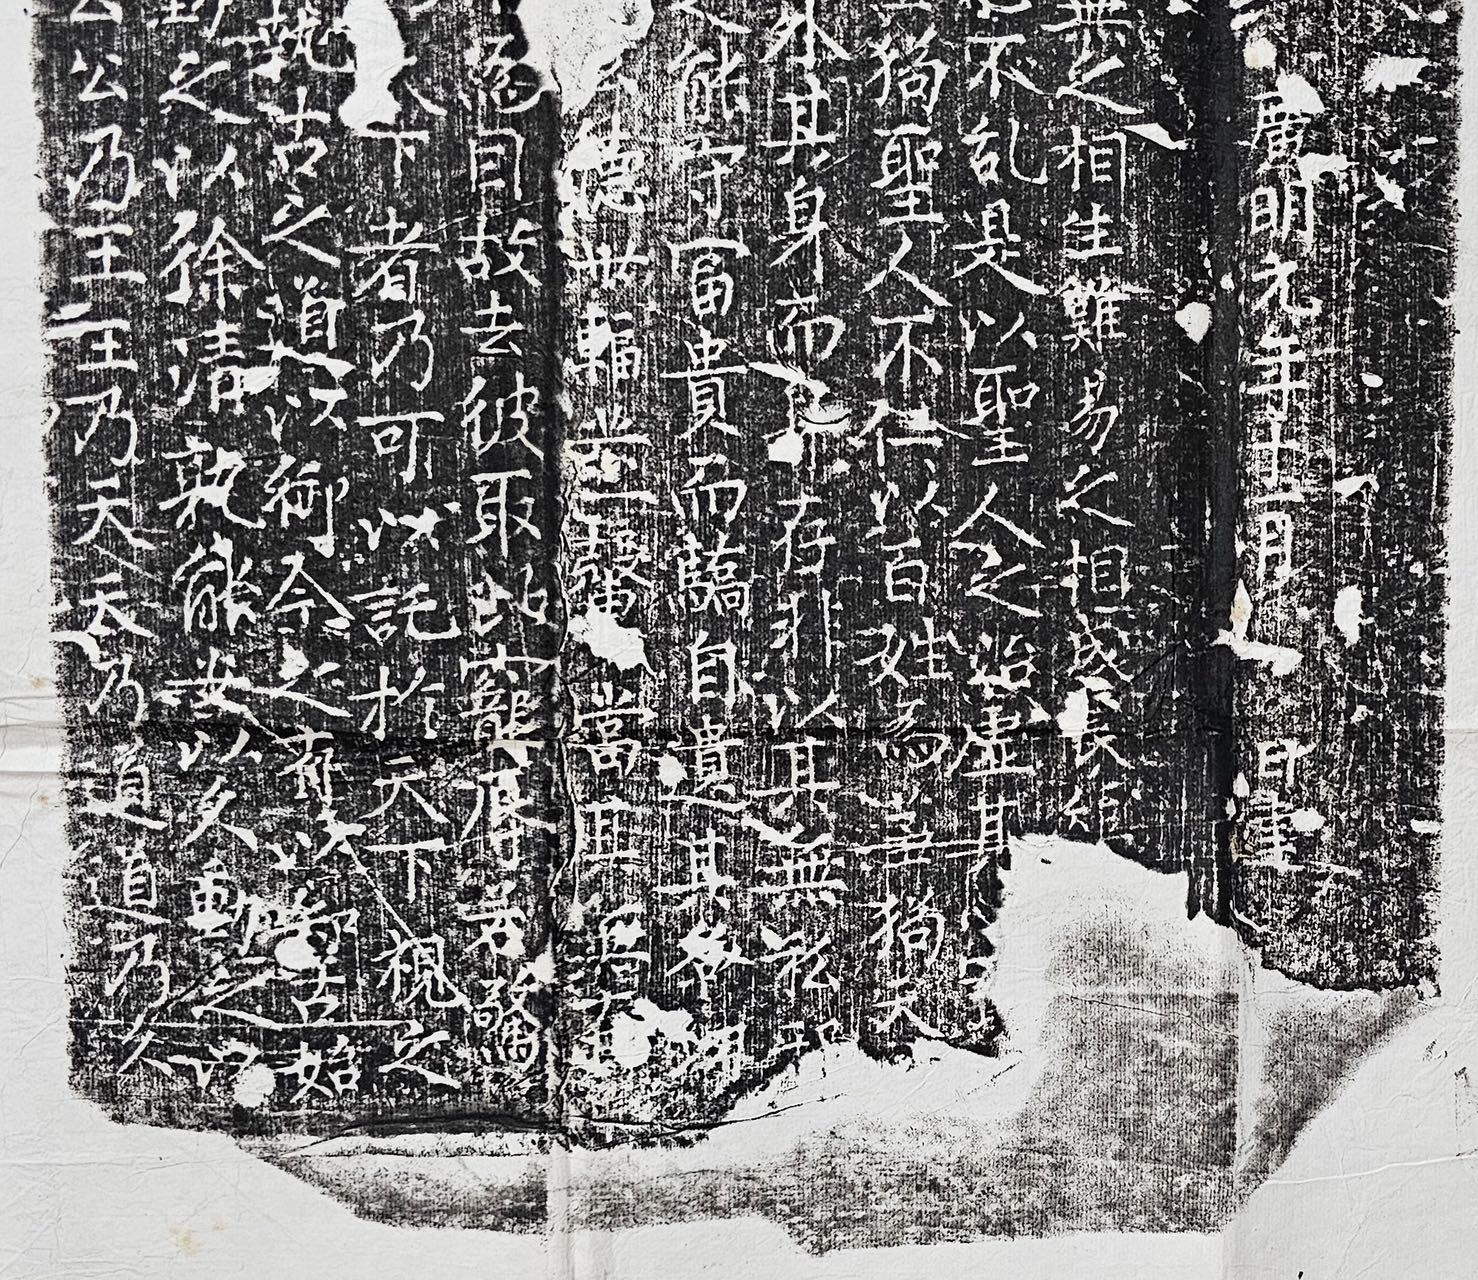 廣明元年十一月 日
無之相生難易之相成長短
不乱是以聖人之治虛其
狗聖人不仁以百姓為芻狗天
外其身而身存非以其無私耶
能守冨貴而驕自遺其咎
德 卅輻共一轂 當其
為目故去彼取此寵辱若驚
天下者乃可以託於天下視之
執古之道以御今之有以知古始
動之以徐清孰能安以久動之以
公公乃王王乃天天乃道道乃久